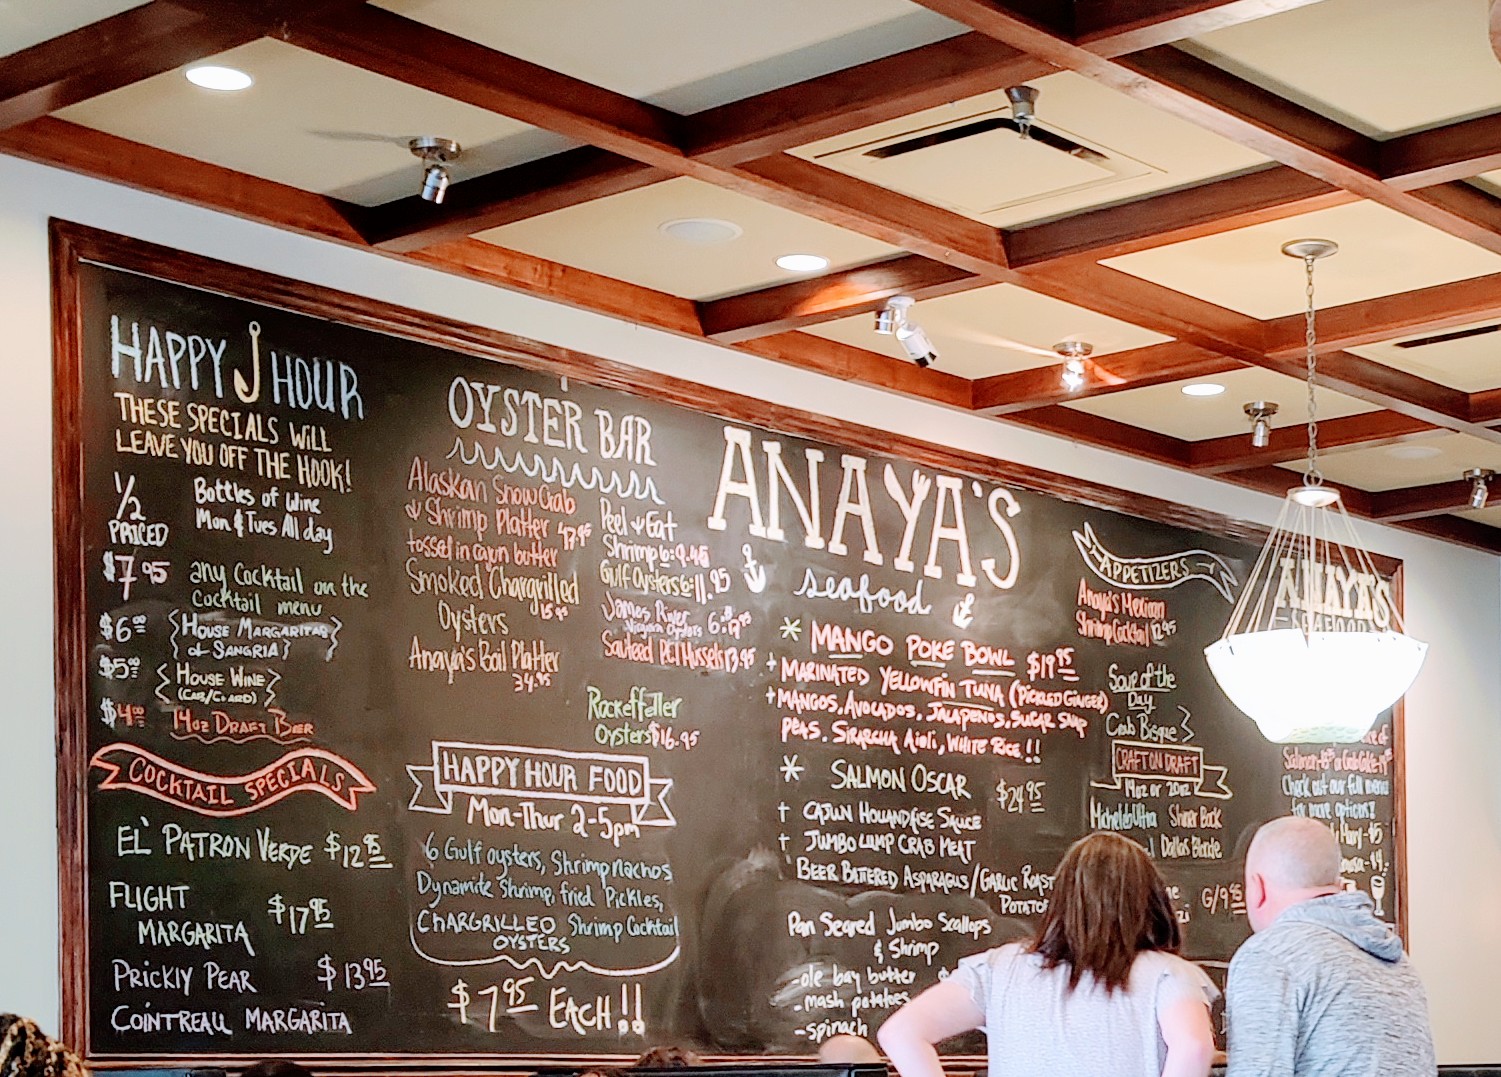 HAPPY HOUR
THESE SPECIALS WILL
LEAVE YOU OFF THE HOOK!
1/2
PRICED
Bottles of Wine
Mon & Tues All day
$7.95 any Cocktail on the
Cocktail menu
$6.00 House Margaritas
or Sangria
$5.00 House Wine
$4.00 14oz Draft Beer
COCKTAIL SPECIALS
EL' PATRON VERDE $12.95
FLIGHT
MARGARITA $17.95
PRICKLY PEAR $13.95
COINTREAU MARGARITA
OYSTER BAR
Alaskan Snow Crab
& Shrimp Platter
tossed in cajun butter
Smoked Chargrilled
Oysters 15.95
Anaya's Boil Platter
34.95
Peel & Eat
Shrimp 6: 9.45
Gulf Oysters 6: 11.95
James River
Sauteed PEI Mussels 13.95
Rockeffeller
Oysters $16.95
HAPPY HOUR FOOD
Mon-Thur 2-5pm
6 Gulf oysters, Shrimp nachos
Dynamite Shrimp, fried Pickles,
CHARGRILLED Shrimp Cocktail
OYSTERS
$7.95 EACH!!
ANAYA'S
seafood
* MANGO POKE BOWL $19.95
+ MARINATED YELLOWFIN TUNA (PICKLED GINGER)
+ MANGOS, AVOCADOS, JALAPENOS, SUGAR SNAP
PEAS, SIRARCHA AIOLI, WHITE RICE!!
* SALMON OSCAR $24.95
+ CAJUN HOLLANDAISE SAUCE
+ JUMBO LUMP CRAB MEAT
BEER BATTERED ASPARAGUS/GARLIC ROAST
POTATO
Pan Seared Jumbo Scallops
& Shrimp
-ole bay butter
-mash potatoes
-spinach
APPETIZERS
Anaya's Mexican
Shrimp Cocktail 12.95
Soup of the
Day
Crab Bisque
CRAFT ON DRAFT
14oz or 20oz
Michelob Ultra Shiner Bock
Dallas Blonde
G/9.95
ANAYA'S
SEAFOOD
Check out our full menu
for more options!!